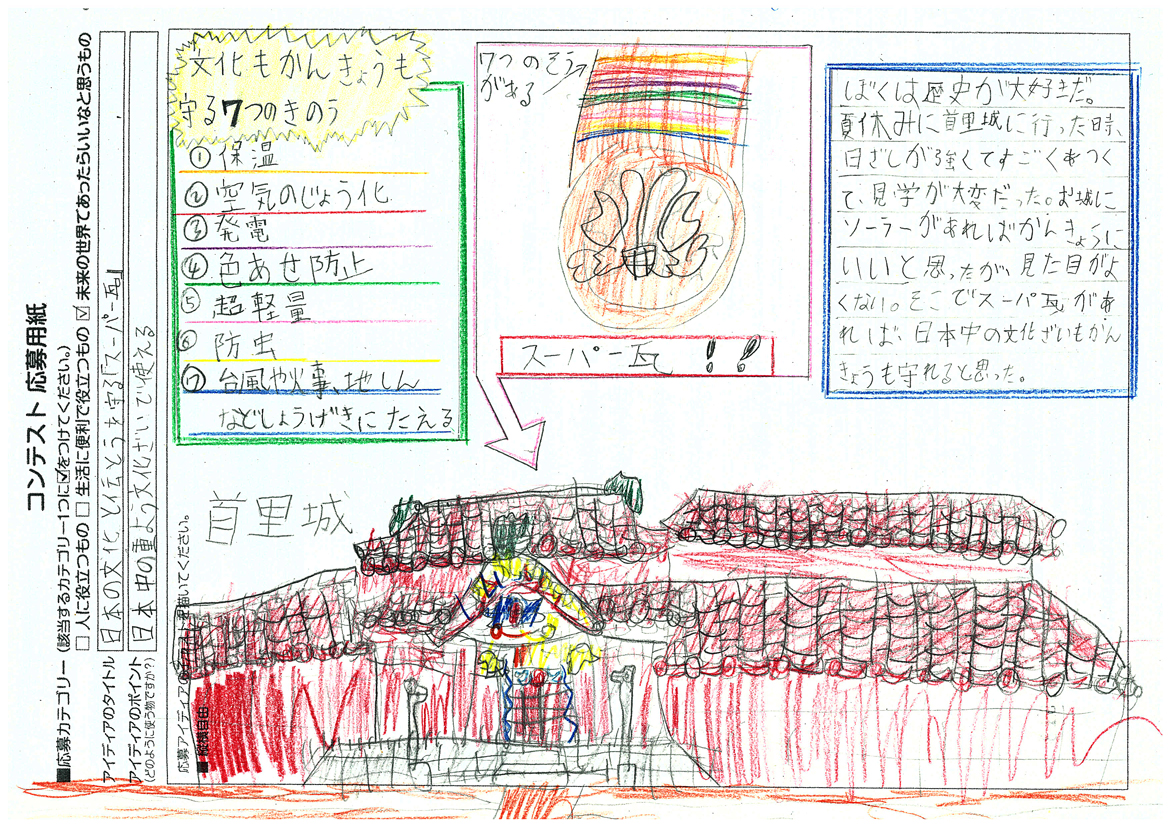 コンテスト 応募用紙
■応募カテゴリー（該当するカテゴリー1つに☑をつけてください。）
□ 人に役立つもの □ 生活に便利で役立つもの ☑ 未来の世界であったらいいなと思うもの
アイディアのタイトル
日本の文化と伝とうを守る「スーパー瓦」
アイディアのポイント
（どのように使う物ですか？）
日本中の重よう文化ざいで使える
■ 縦横自由
文化もかんきょうも
守る7つのきのう
①保温
②空気のじょう化
③発電
④色あせ防止
⑤超軽量
⑥防虫
⑦台風や火事、地しん
などしょうげきにたえる
7つのそう
がある
スーパー瓦！！
ぼくは歴史が大好きだ。
夏休みに首里城に行った時、
日ざしが強くてすごくあつく
て、見学が大変だった。お城に
ソーラーがあればかんきょうに
いいと思ったが、見た目がよ
くない。そこでスーパ瓦があ
れば、日本中の文化ざいもかん
きょうも守れると思った。
首里城